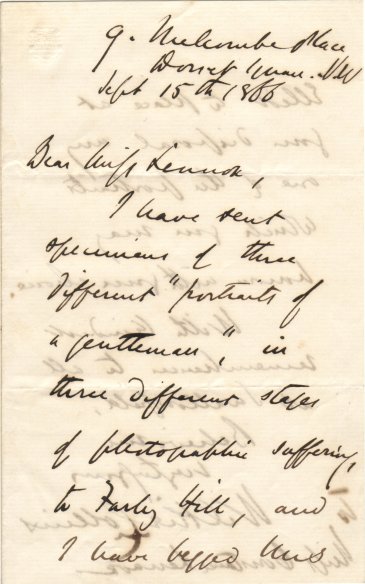 9. Melcombe Place
Dorset Square. N.W
Sept 15th 1866
Dear Miss Lennox,
I have sent
specimens of three
different "portraits of
a gentleman", in
three different stages
of photographic suffering,
to Farley Hill, and
I have begged Mrs